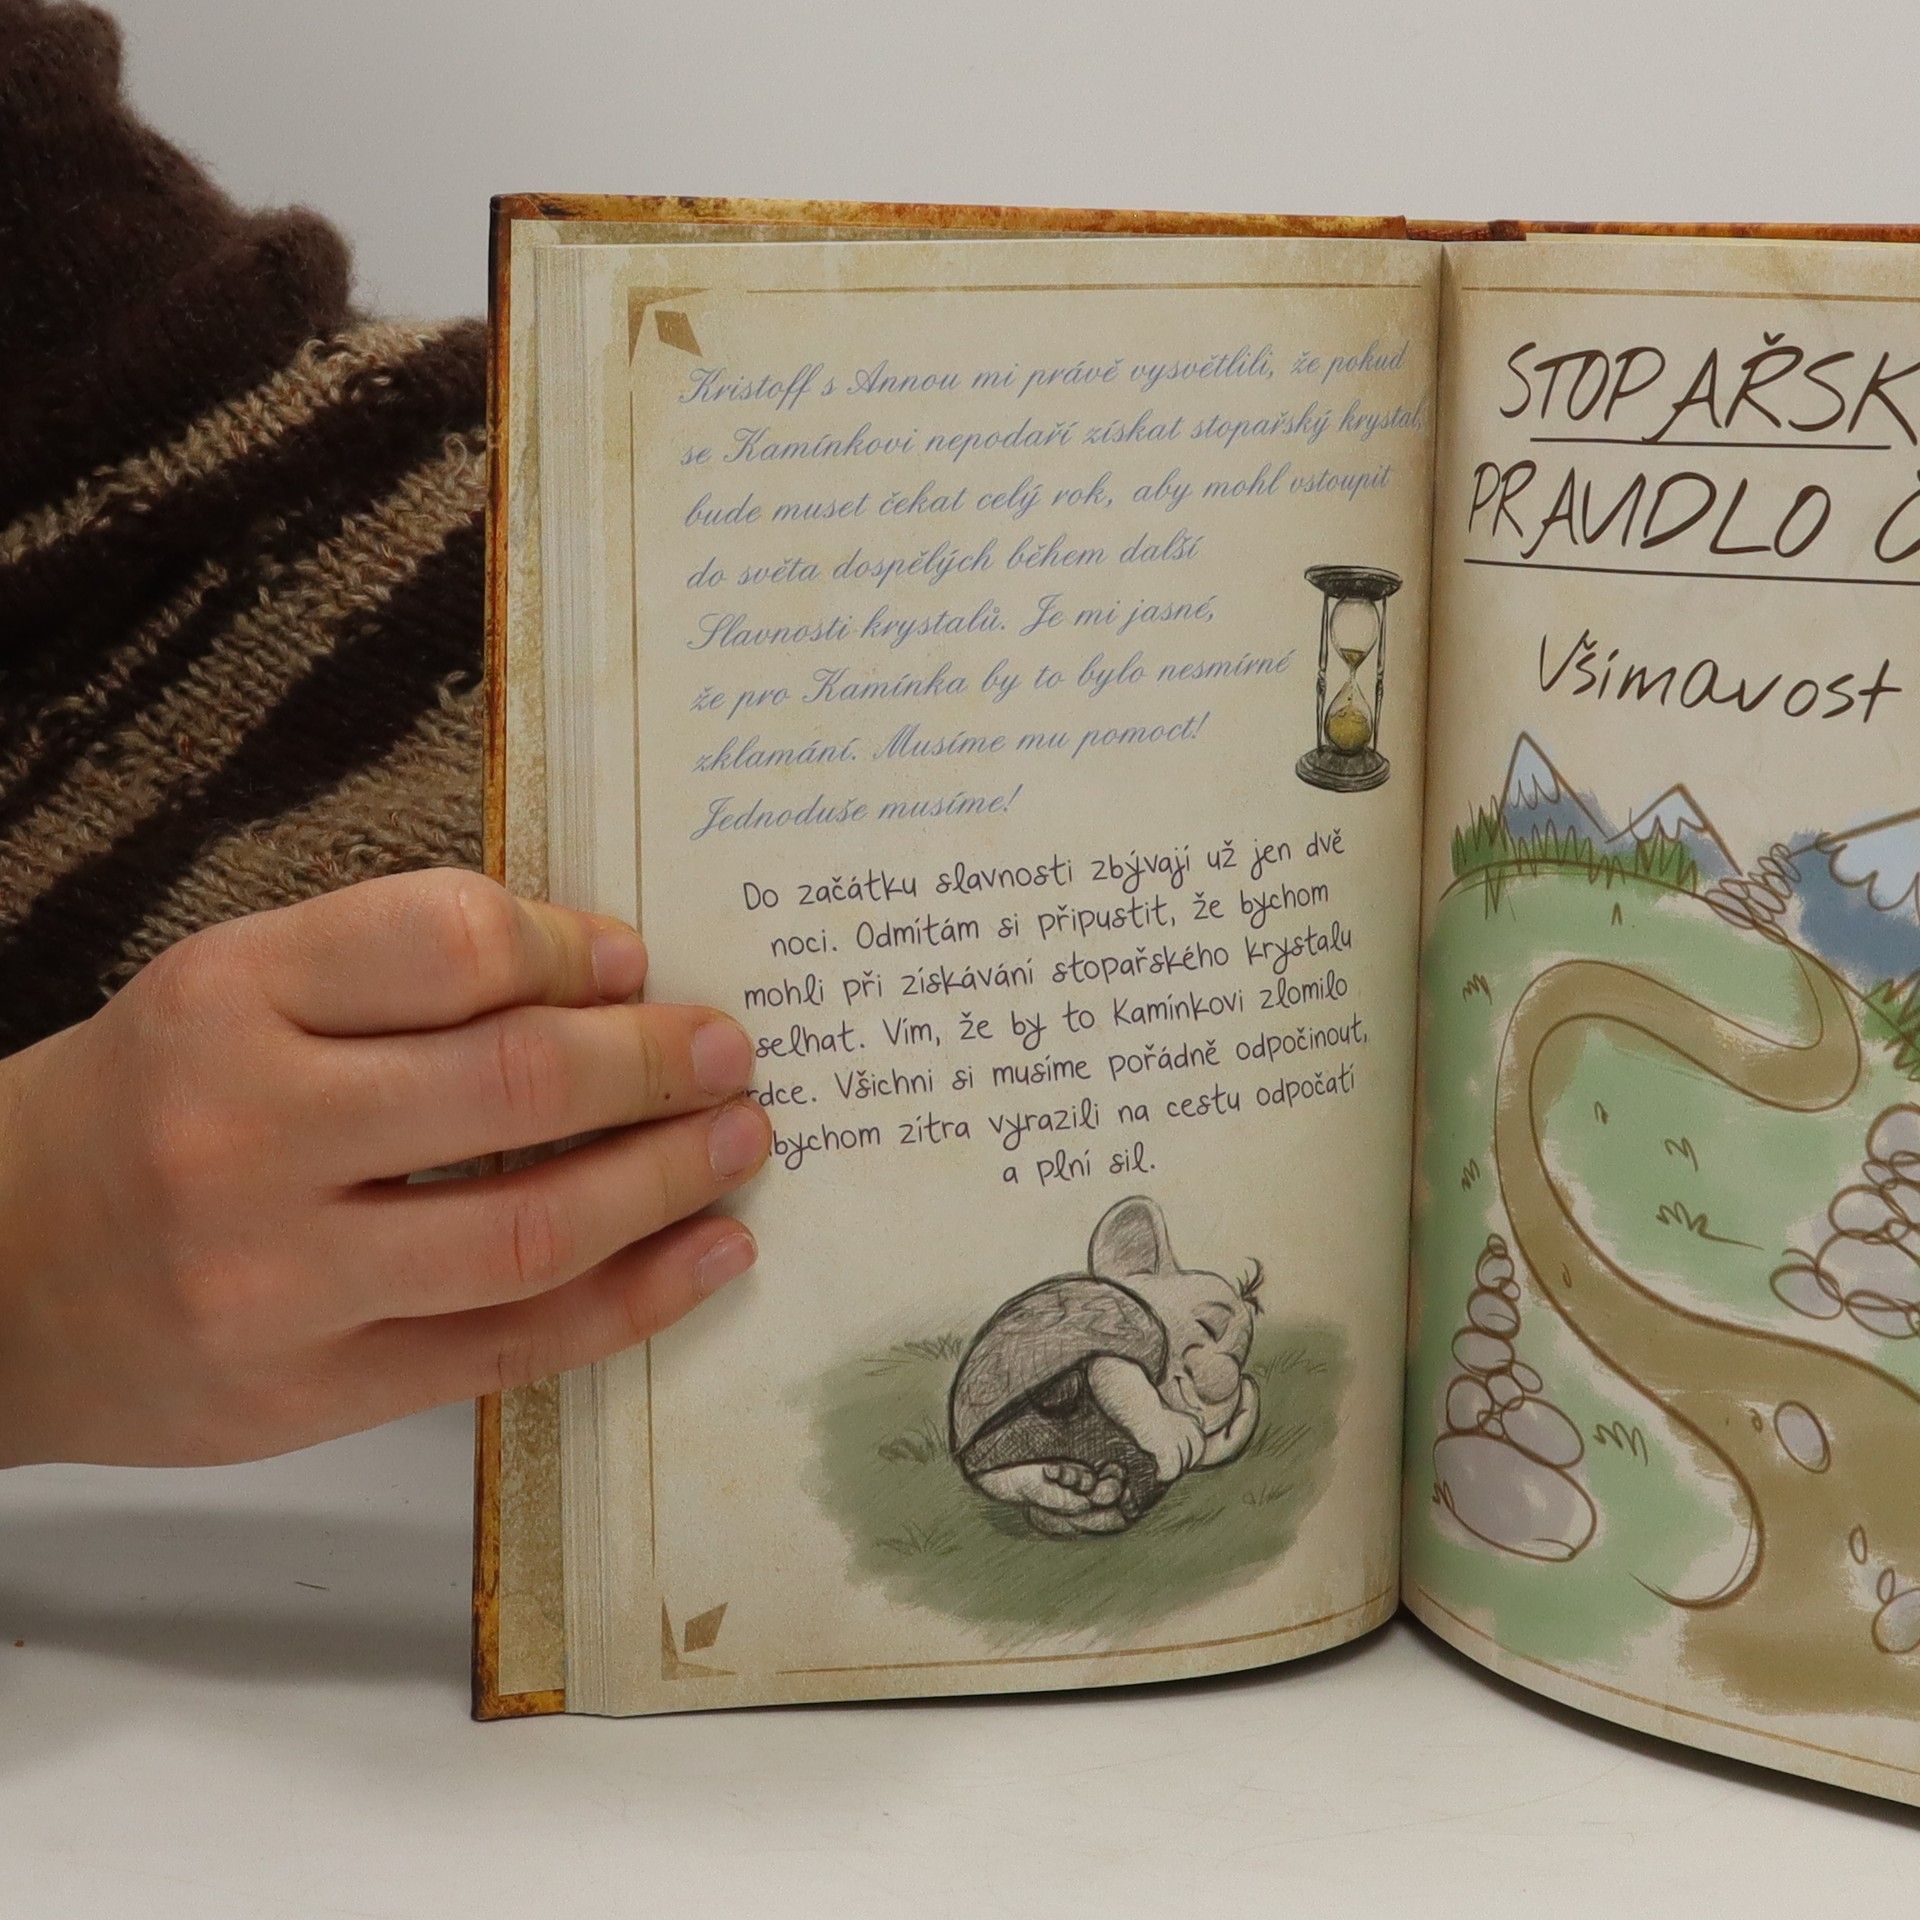 Kristoff s Annou mi právě vysvětlili, že pokud
se Kamínkovi nepodaří získat stopařský krystal,
bude muset čekat celý rok, aby mohl vstoupit
do světa dospělých během další
Slavnosti krystalů. Je mi jasné,
že pro Kamínka by to bylo nesmírné
zklamání. Musíme mu pomoct!
Jednoduše musíme!
Do začátku slavnosti zbývají už jen dvě
noci. Odmítám si připustit, že bychom
mohli při získávání stopařského krystalu
selhat. Vím, že by to Kamínkovi zlomilo
rdce. Všichni si musíme pořádně odpočinout,
bychom zítra vyrazili na cestu odpočatí
a plní sil.
STOPAŘSK
PRAVIDLO Č
Všímavost